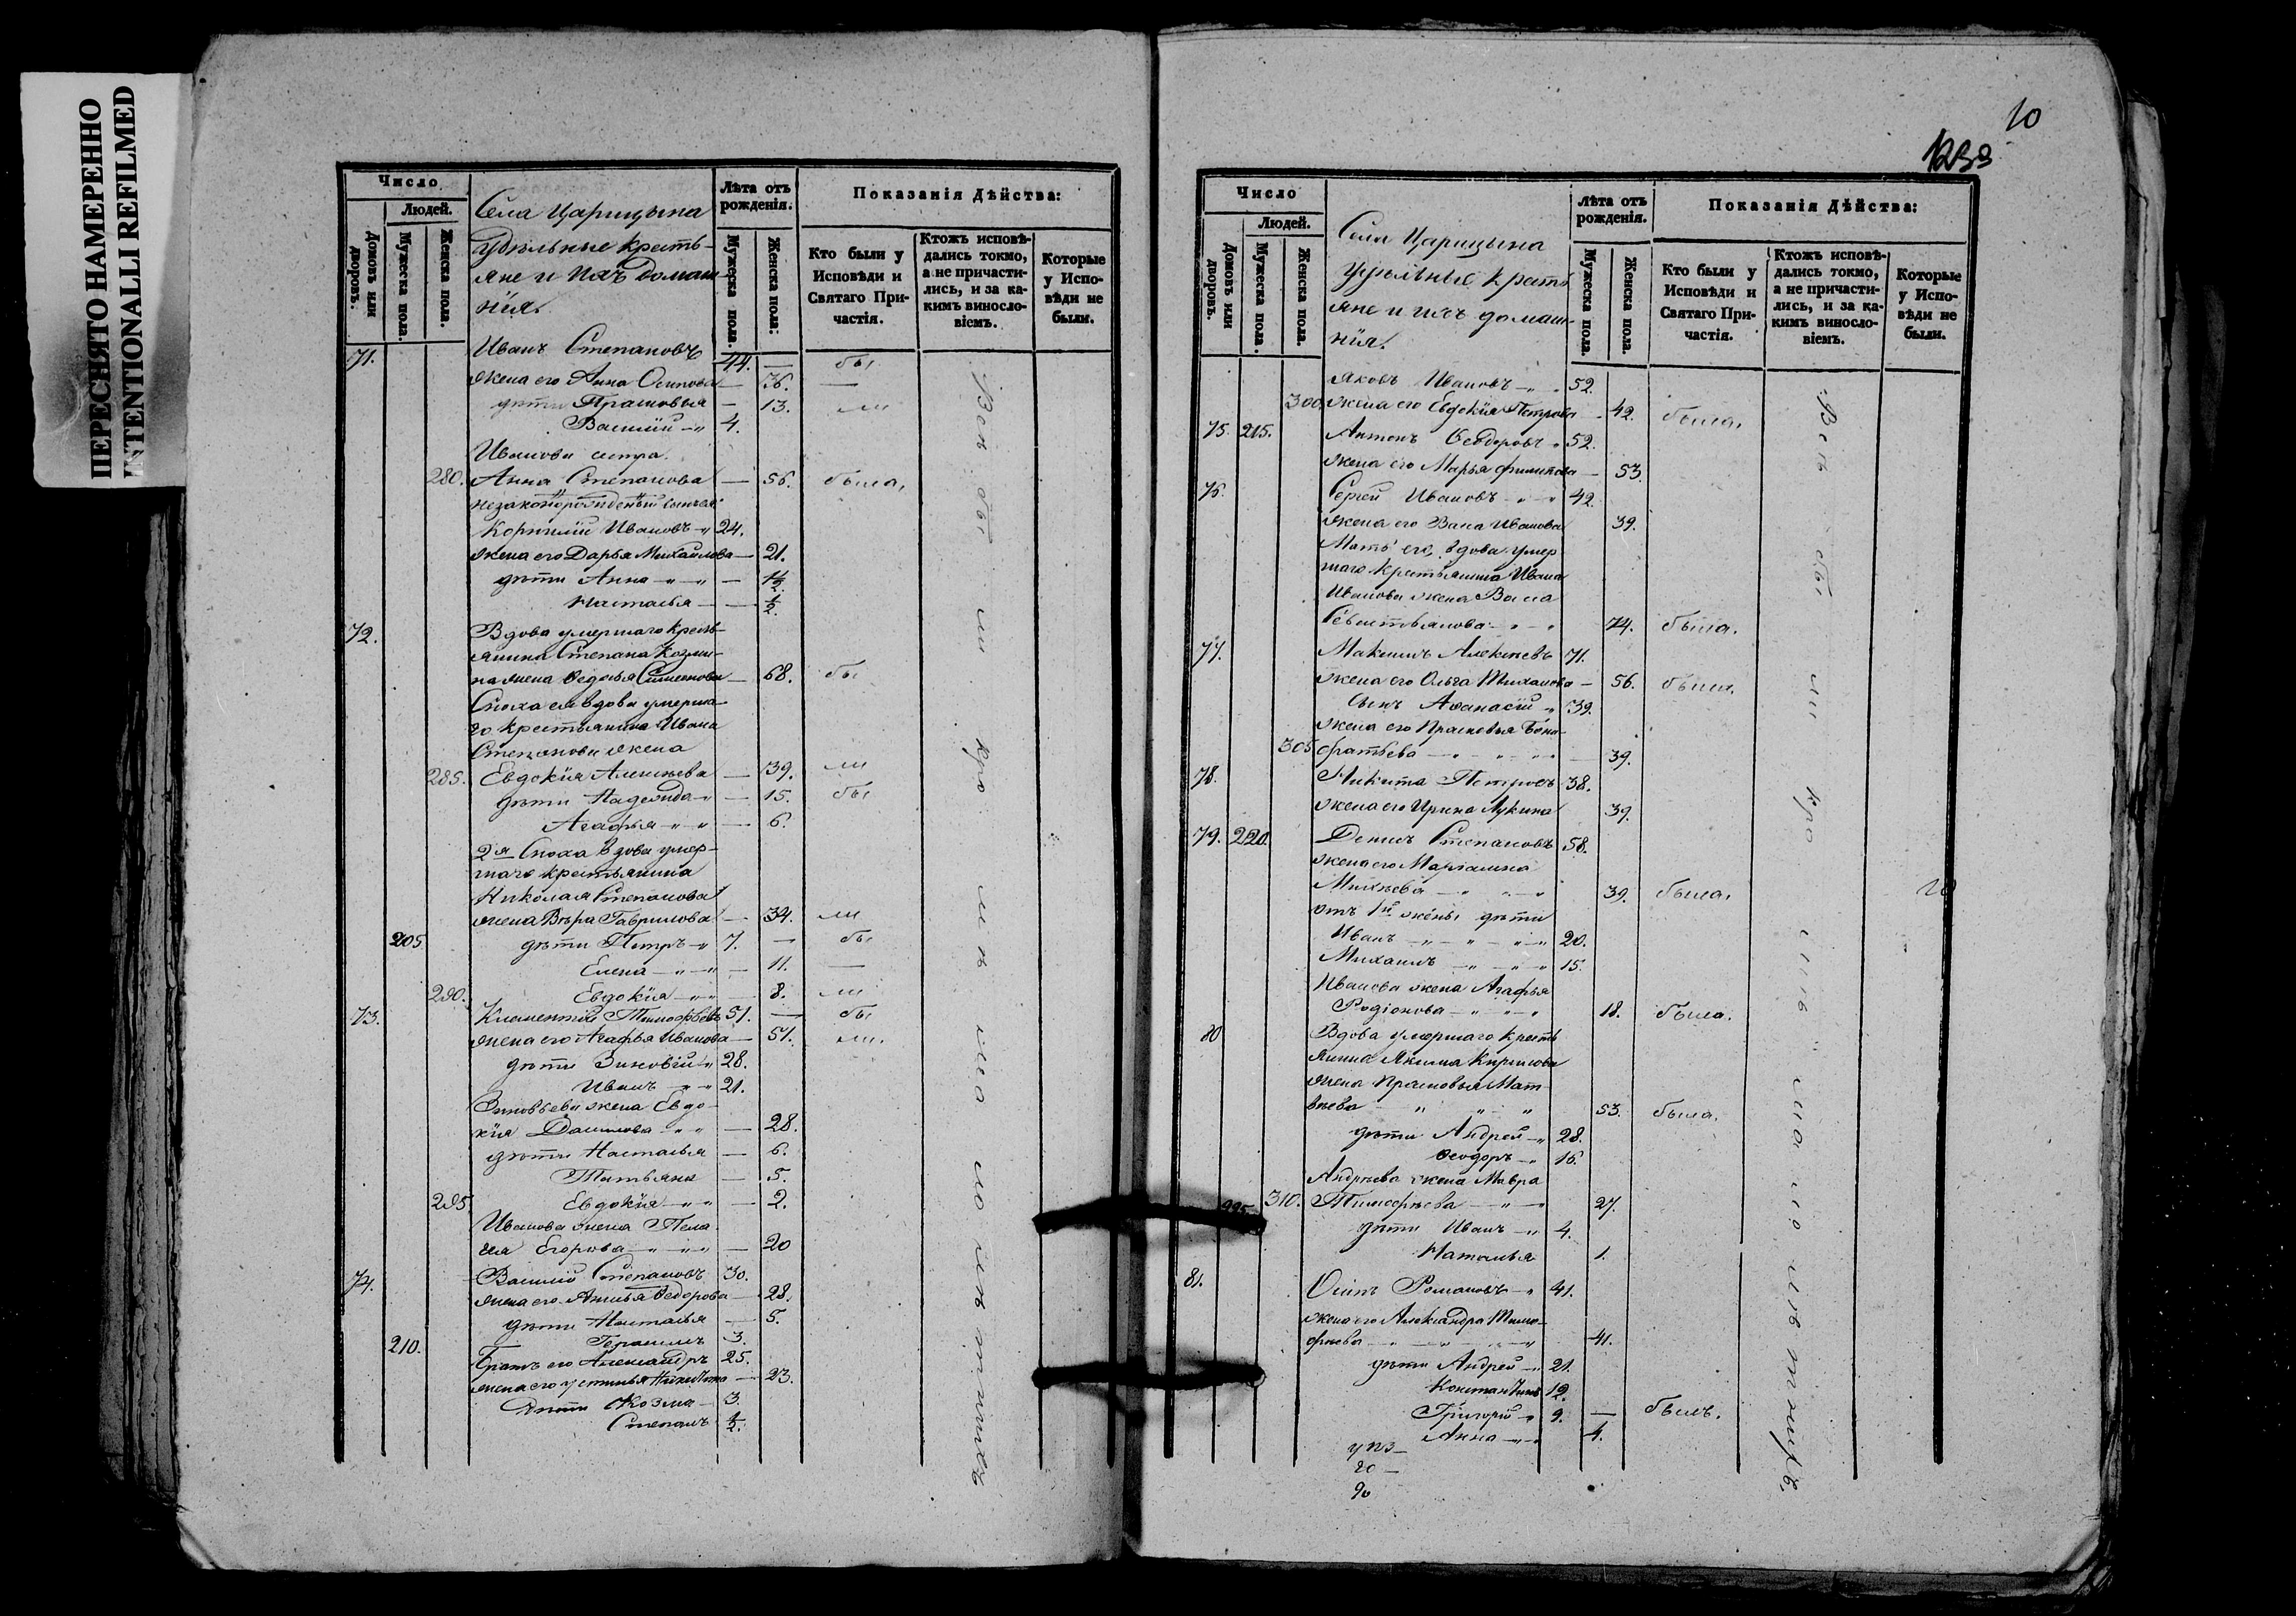 ПЕРЕСНЯТО НАМЕРЕННО
INTENTIONALLI REFILMED
Число
Людей.
Домовъ или дворовъ.
Мужеска пола.
Женска пола.
Села Царицына
Удѣльные кресть-
яне и ихъ домаш-
нія.
Лѣта отъ рожденія.
Мужеска пола.
Женска пола:
Показанія Дѣйства:
Кто были у Исповѣди и Святаго При- частія.
Ктожъ исповѣ- дались токмо, а не причасти- лись, и за ка- кимъ виносло- віемъ.
Которые у Испо- вѣди не были.
71. Иванъ Степановъ 44. — бы
жена его Анна Осипова — 36. —
дѣти Прасковья — 13. ли
Василій 4.
Иванова сестра.
280. Анна Степанова — 56. была,
незаконорожденный сынъ ея
Корнилій Ивановъ 24.
жена его Дарья Михайлова — 21.
дѣти Анна — 1½
Наталья — ½.
72. Вдова умершаго кресть-
янина Степана Козми-
на жена Федосья Симеонова — 68. бы
Сноха ея вдова умерша-
го крестьянина Ивана
Степанова жена
285. Евдокія Алексѣева — 39. ли
дѣти Надежда — 15. бы
Агафья — 6.
2я Сноха вдова умер-
шаго крестьянина
Николая Степанова
жена Вѣра Гаврилова — 34. ли
205 дѣти Петръ 7. — бы
Елена — 11. —
290. Евдокія — 8. ли
73. Климентій Тимофѣевъ 51. — бы
жена его Агафья Иванова — 51. ли.
дѣти Зиновій 28.
Иванъ 21.
Зиновьева жена Евдо-
кія Данилова — 28.
дѣти Наталья — 6.
Татьяна — 5.
295 Евдокія — 2.
Иванова жена Пела-
гея Егорова — 20
74. Василій Степановъ 30.
жена его Федорова — 28.
дѣти Наталья — 5.
210. Герасимъ 3.
Братъ его Александръ 25.
жена его Устинья Никитина — 23.
дѣти Козма 3.
Степанъ ½.
10
1233
Число
Людей.
Домовъ или дворовъ.
Мужеска пола.
Женска пола.
Села Царицына
Удѣльные кресть
яне и ихъ домаш-
нія.
Лѣта отъ рожденія.
Мужеска пола.
Женска пола.
Показанія Дѣйства:
Кто были у Исповѣди и Святаго При- частія.
Ктожъ исповѣ- дались токмо, а не причасти- лись, и за ка- кимъ виносло- віемъ.
Которые у Испо- вѣди не были.
Яковъ Ивановъ 52.
300. жена его Евдокія Петрова 42. была,
75. 215. Антонъ Ѳеодоровъ 52.
жена его Марья Филипова — 53.
76. Сергей Ивановъ 42.
жена его Васа Иванова 39.
Мать его, вдова умер
шаго крестьянина Ивана
Иванова жена Васа
Севастьянова 74. была.
77. Максимъ Алексѣевъ 71.
жена его Ольга — 56. была,
сынъ Аѳанасій 39.
жена его Прасковья
305 — 39.
78. Никита Петровъ 38.
жена его Ирина Лукина 39.
79. 220. Денисъ Степановъ 58.
жена его Марьямна
Михѣева 39. была,
отъ 1й жены дѣти
Иванъ 20.
Михаилъ 15.
Иванова жена Агафья
Родіонова 18. была.
80 Вдова умершаго кресть
янина Якима Кирилова
жена Прасковья Мат-
вѣева 53. была.
дѣти Андрей 28.
Ѳеодоръ 16.
Андрѣева жена Мавра
225 310. Тимофѣева 27.
дѣти Иванъ 4.
Наталья 1.
81. Осипъ Романовъ 41.
жена его Александра Тимо-
фѣева 41.
дѣти Андрей 21.
Константинъ 12.
Григорій 9. — былъ.
Анна 4.